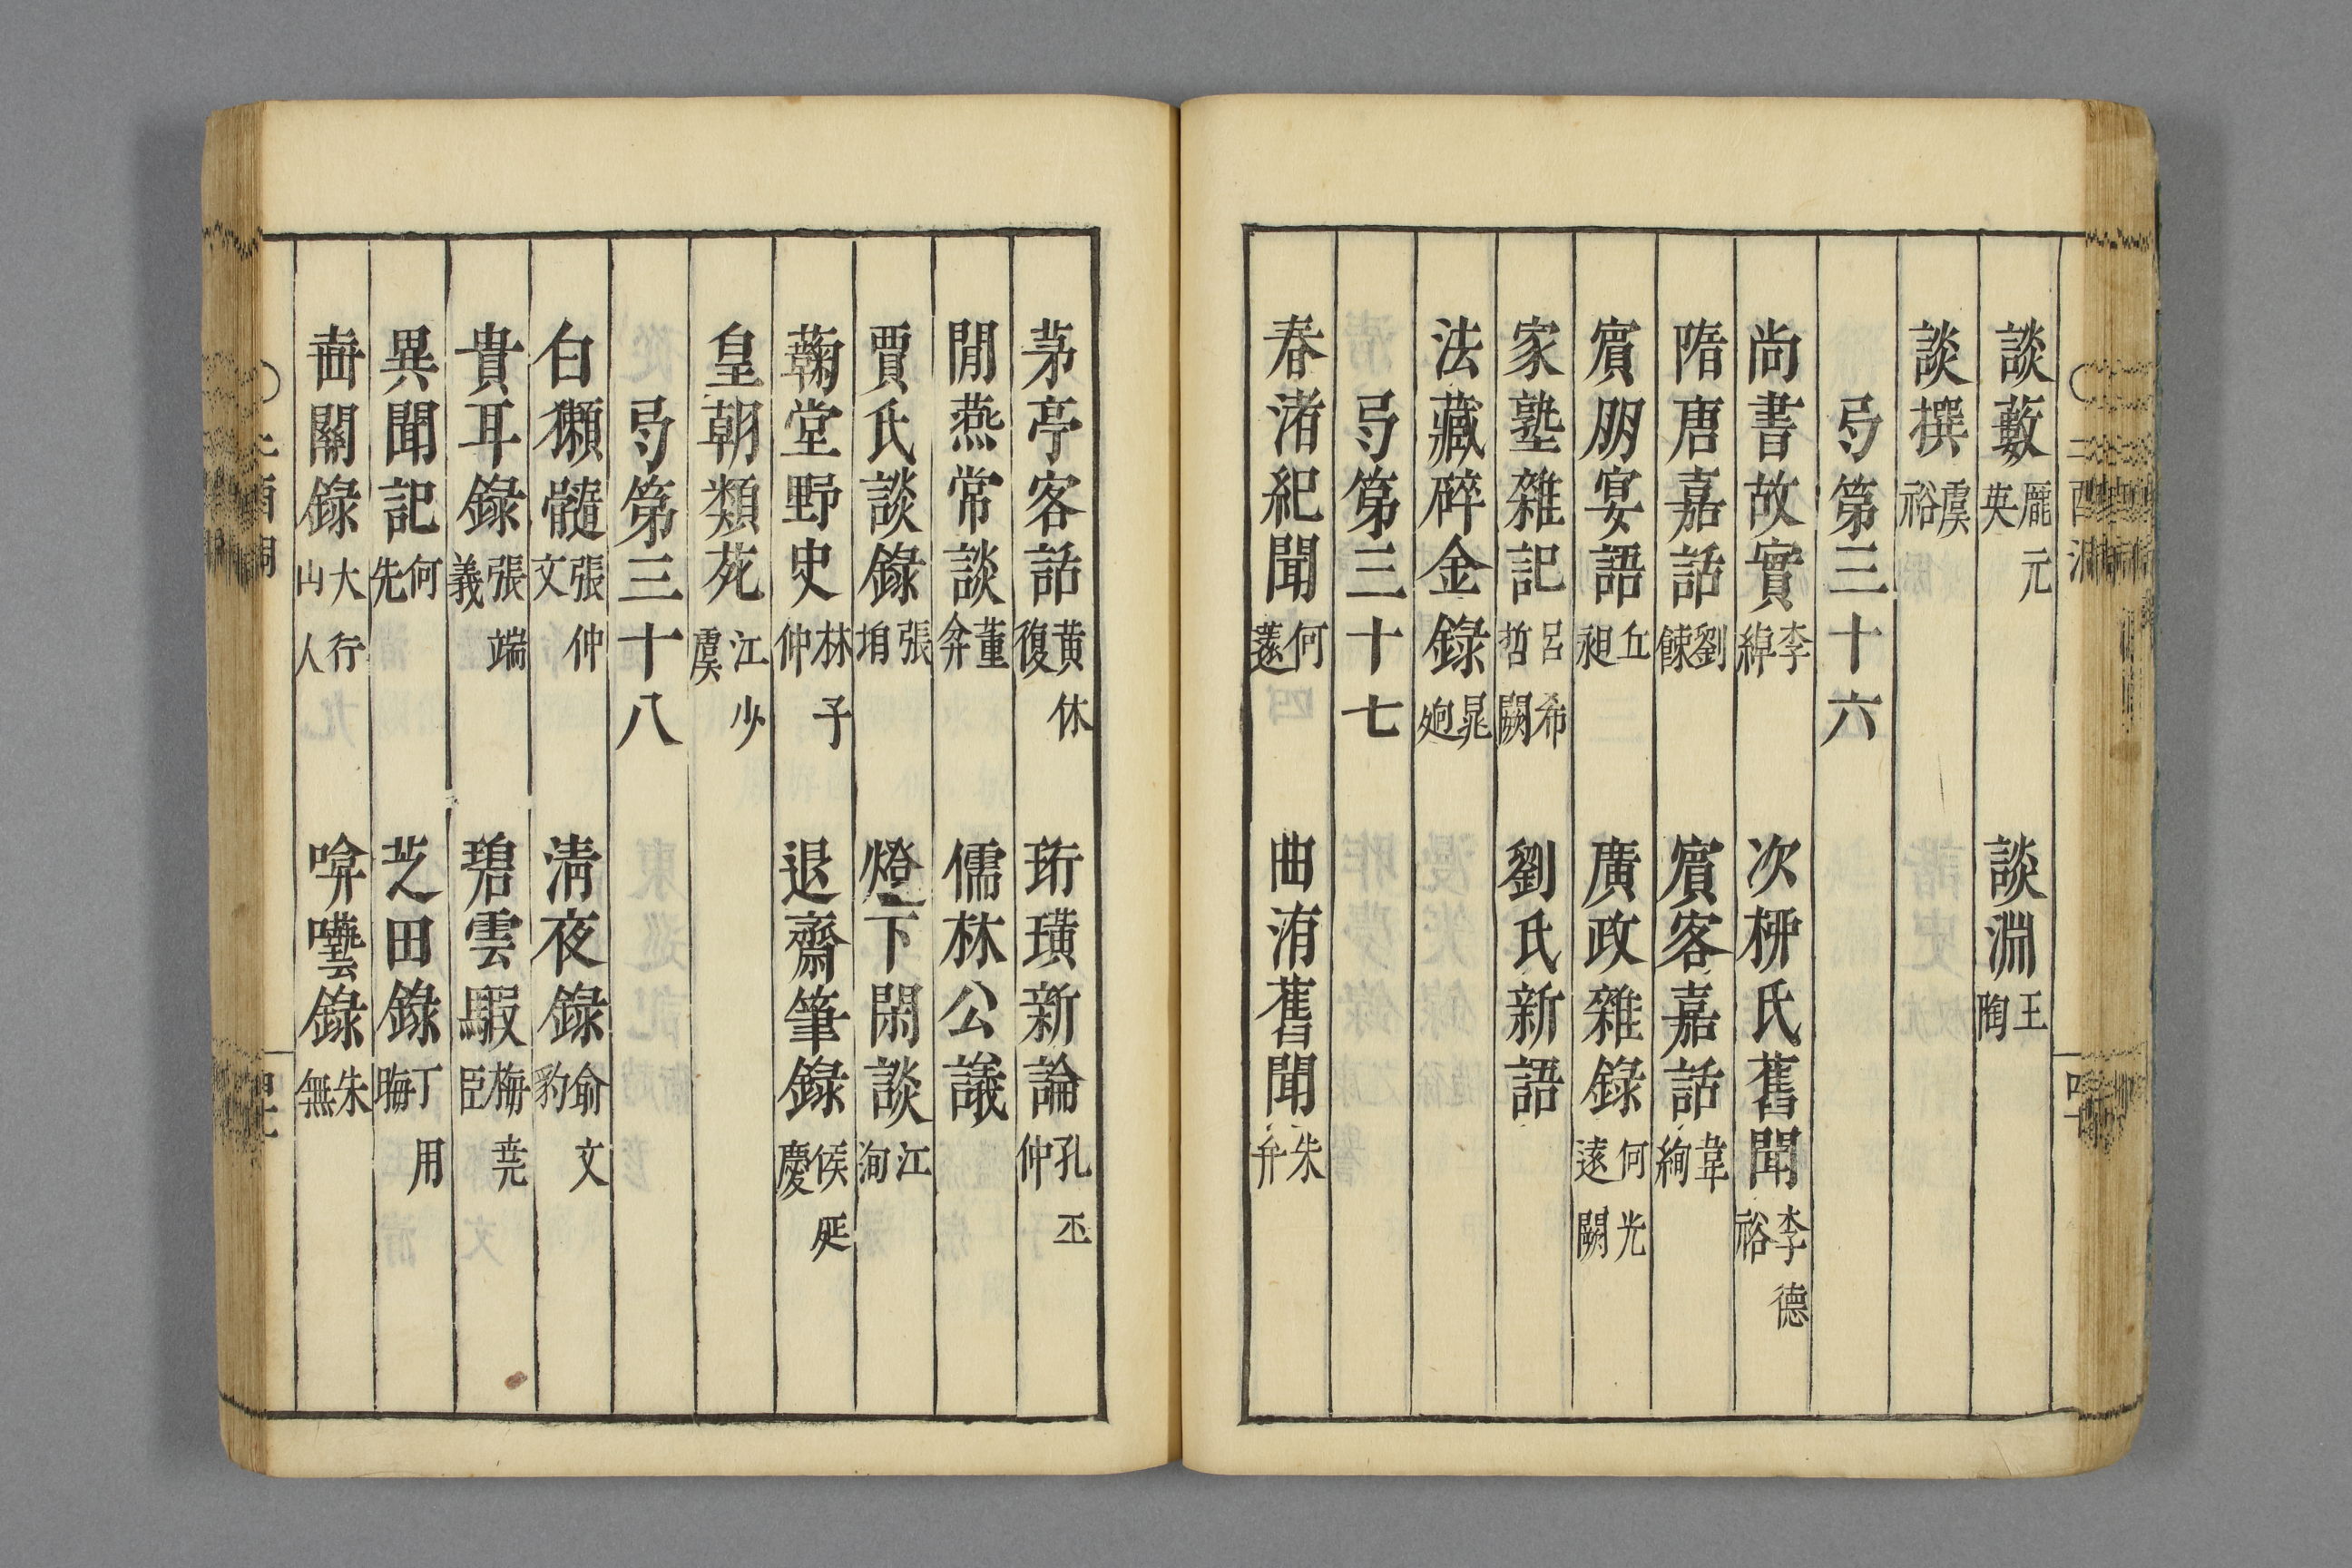 談藪 龎元英 談淵 王陶
談撰 虞裕
弓第三十六
尚書故實 李綽 次柳氏舊聞 李德裕
隋唐嘉話 劉餗 賔客嘉話 韋絢
賔朋宴語 丘昶 廣政雜錄 何光遠 闕
家塾雜記 呂希哲 闕 劉氏新語
法藏碎金錄 晁逈
弓第三十七
春渚紀聞 何薳 曲洧舊聞 朱弁
茅亭客話 黄休復 珩璜新論 孔平仲
閒燕常談 董弅 儒林公議
賈氏談錄 張洎 燈下閑談 江洵
蘜堂野史 林子仲 退齋筆錄 侯延慶
皇朝類苑 江少虞
弓第三十八
白獺髓 張仲文 清夜錄 俞文豹
貴耳錄 張端義 碧雲騢 梅堯臣
異聞記 何先 芝田錄 丁用晦
晝關錄 大行山人 啽囈錄 朱無